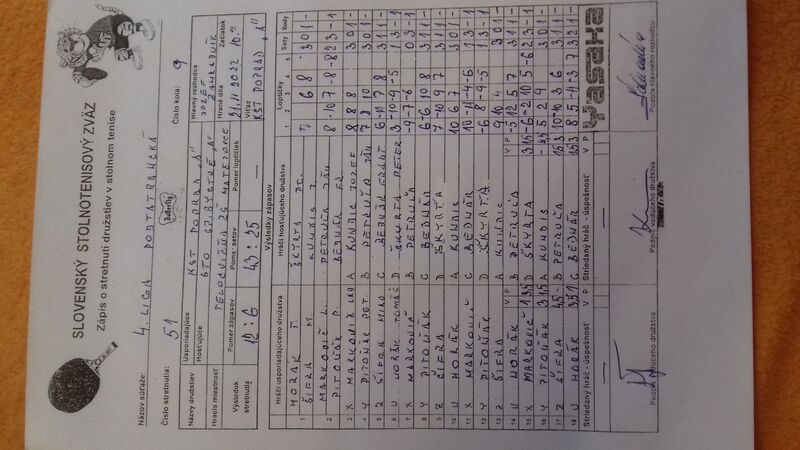 SLOVENSKÝ STOLNOTENISOVÝ ZVÄZ
Zápis o stretnutí družstiev v stolnom tenise
Názov súťaže: 4. LIGA PODTATRANSKÁ
Číslo stretnutia: 51
Butterfly
Číslo kola: 9
Názvy družstiev
Usporiadajúce KST POPRAD "A"
Hosťujúce
Hlavný rozhodca JOZEF
Hracia miestnosť TELOCVIČŇA ZŠ MATEJOVCE
Hrané dňa 21.11.2022
Začiatok 10.00
Výsledok stretnutia
Pomer zápasov 12:6
Pomer setov 43:25
Pomer loptičiek —
Víťaz KST POPRAD "A"
Výsledky zápasov
Hráči usporiadajúceho družstva
Hráči hosťujúceho družstva
Loptičky
Sety
Body
1 2 3 4 5
HORÁK T. ŠKYRTA PE.
1 ŠIFRA M. KUNDIS J. 7 6 8 3 0 1 -
MARKOVIČ L. PETRUĽA JÁN
2 PITOŇÁK P. BEDNÁR ER. 8 -10 7 -8 -8 2 3 - 1
3 X MARKOVIČ LAD A KUNDIS JOZEF 8 8 8 3 0 1 -
4 Y PITOŇÁK PET. B PETRUĽA JÁN
5 Z ŠIFRA MIRO C BEDNÁR ERNST 6 -11 7 8 3 1 1 -
6 U HORÁK TOMÁŠ D ŠKYRTA PETER 3 -10 -9 -5 1 3 - 1
7 X MARKOVIČ B PETRUĽA -9 -7 -6 0 3 - 1
8 Y PITOŇÁK C BEDNÁR 6 -6 10 8 3 1 1 -
9 Z ŠIFRA D ŠKYRTA 7 -10 9 7 3 1 1 -
10 U HORÁK A KUNDIS 10 6 7 3 0 1 -
11 X MARKOVIČ C BEDNÁR 10 -11 -4 -6 1 3 - 1
12 Y PITOŇÁK D ŠKYRTA -6 8 -9 -5 1 3 - 1
13 Z ŠIFRA A KUNDIS 9 10 4 3 0 1 -
V P V P
14 U HORÁK B PETRUĽA -5 12 5 7 3 1 1 -
15 X MARKOVIČ D ŠKYRTA -6 -2 10 5 -6 2 3 - 1
16 Y PITOŇÁK A KUNDIS 5 2 9 3 0 1 -
17 Z ŠIFRA B PETRUĽA 10 -10 3 6 3 1 1 -
18 U HORÁK C BEDNÁR 8 5 -11 -3 7 3 2 1 -
Striedaný hráč - úspešnosť V P
Striedaný hráč - úspešnosť V P
YASAKA
Podpis vedúceho družstva
Podpis vedúceho družstva
Podpis hlavného rozhodcu